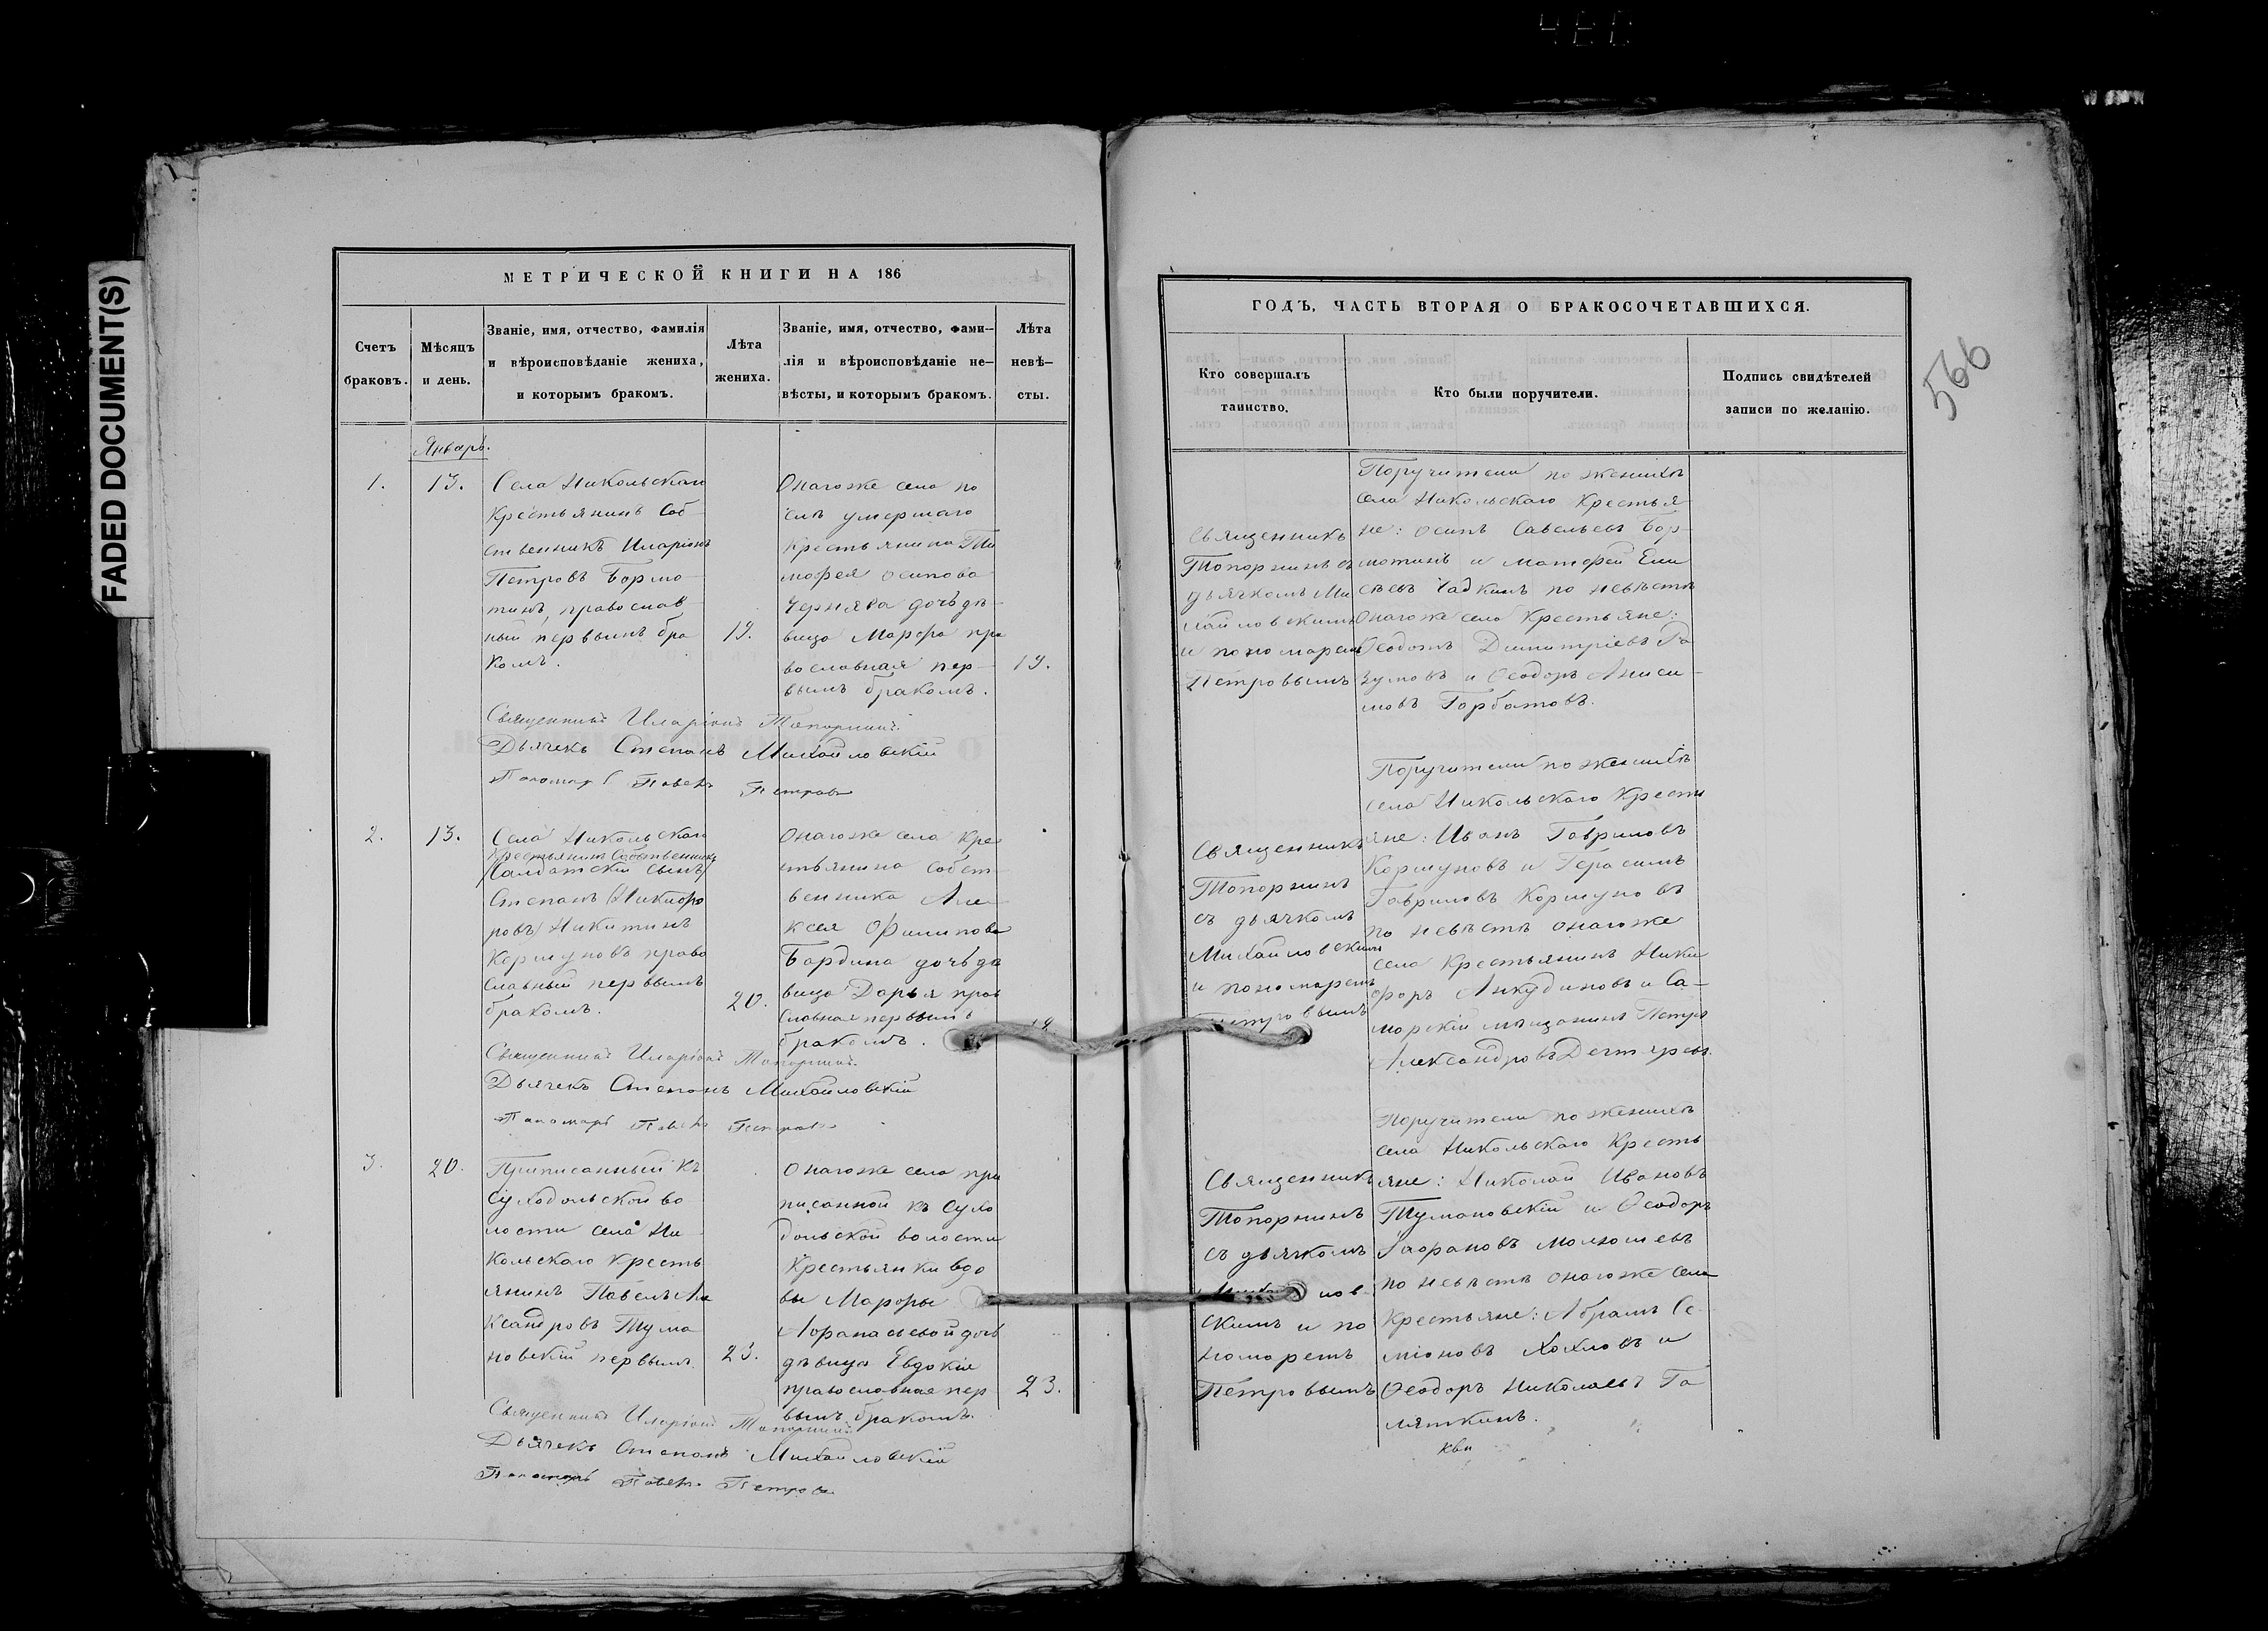 FADED DOCUMENT(S)
МЕТРИЧЕСКОЙ КНИГИ НА 186
Счетъ
браковъ.
Мѣсяцъ
и день.
Званіе, имя, отчество, фамилія
и вѣроисповѣданіе жениха,
и которымъ бракомъ.
Лѣта
жениха.
Званіе, имя, отчество, фами-
лія и вѣроисповѣданіе не-
вѣсты, и которымъ бракомъ.
Лѣта
невѣ-
сты.
Январь.
1.
13.
Села Никольскаго
Крестьянинъ Соб
ственникъ Иларіонъ
Петровъ Бормо
тинъ, православ
ный первымъ бра
комъ.
19.
Онагоже села по
слѣ умершаго
Крестьянина Ти
мофея Осипова
Чернява дочь дѣ
вица Марфа пра
вославная пер-
вымъ бракомъ.
19.
Священникъ Иларіонъ Топорнинъ
Дьячекъ Степанъ Михайловскій
Пономарь Павелъ Петровъ
2.
13.
Села Никольскаго
Крестьянинъ Собственникъ
(Салдатскій сынъ)
Степанъ (Никифо
ровъ) Никитинъ
Коршуновъ право
славный первымъ
бракомъ.
20.
Онагоже села Кре
стьянина Собст
венника Але
ксея Филипова
Бардина дочь дѣ
вица Дарья прав
славная первымъ
бракомъ.
Священникъ Иларіонъ Топорнинъ
Дьячекъ Степанъ Михайловскій
Пономарь Павелъ Петровъ
3.
20.
Приписанный къ
Суходольской во
лости села Ни
кольскаго Кресть
янинъ Павелъ Але
ксандровъ Тума
новскій первымъ.
23.
Онагоже села при
писанной къ Сухо
дольской волости
Крестьянки вдо
вы Марфы
Афанасьевой дочь
дѣвица Евдокія
православная пер
вымъ бракомъ.
23.
Священникъ Иларіонъ Топорнинъ
Дьячекъ Степанъ Михайловскій
Пономарь Павелъ Петровъ
ГОДЪ, ЧАСТЬ ВТОРАЯ О БРАКОСОЧЕТАВШИХСЯ.
Кто совершалъ
таинство.
Кто были поручители.
Подпись свидѣтелей
записи по желанію.
566
Священникъ
Топорнинъ съ
дьячкомъ Ми
хайловскимъ
и пономаремъ
Петровымъ
Поручители по женихѣ
села Никольскаго Крестья
не: Осипъ Савельевъ Бор
мотинъ и Матфей Ели
сѣевъ Чадкинъ по невѣстѣ
Онагоже села Крестьяне:
Ѳеодотъ Димитріевъ Ра
зумовъ и Ѳеодоръ Аниси
мовъ Горбатовъ.
Священникъ
Топорнинъ
съ дьячкомъ
Михайловскимъ
и пономаремъ
Петровымъ
Поручители по женихѣ
села Никольскаго Кресть
яне: Иванъ Гавриловъ
Коршуновъ и Герасимъ
Гавриловъ Коршуновъ
по невѣстѣ онагоже
села Крестьянинъ Ники
форъ Анкудиновъ и Са-
марскій мѣщанинъ Петръ
Александровъ Дегтяревъ.
Священникъ
Топорнинъ
съ дьячкомъ
скимъ и по
номаремъ
Петровымъ
Поручители по женихѣ
села Никольскаго Кресть
яне: Николай Ивановъ
Тумановскій и Ѳеодоръ
по невѣстѣ онагоже села
Крестьяне: Абрамъ Се-
міоновъ Хохловъ и
Ѳеодоръ Николаевъ Га
ляткинъ.